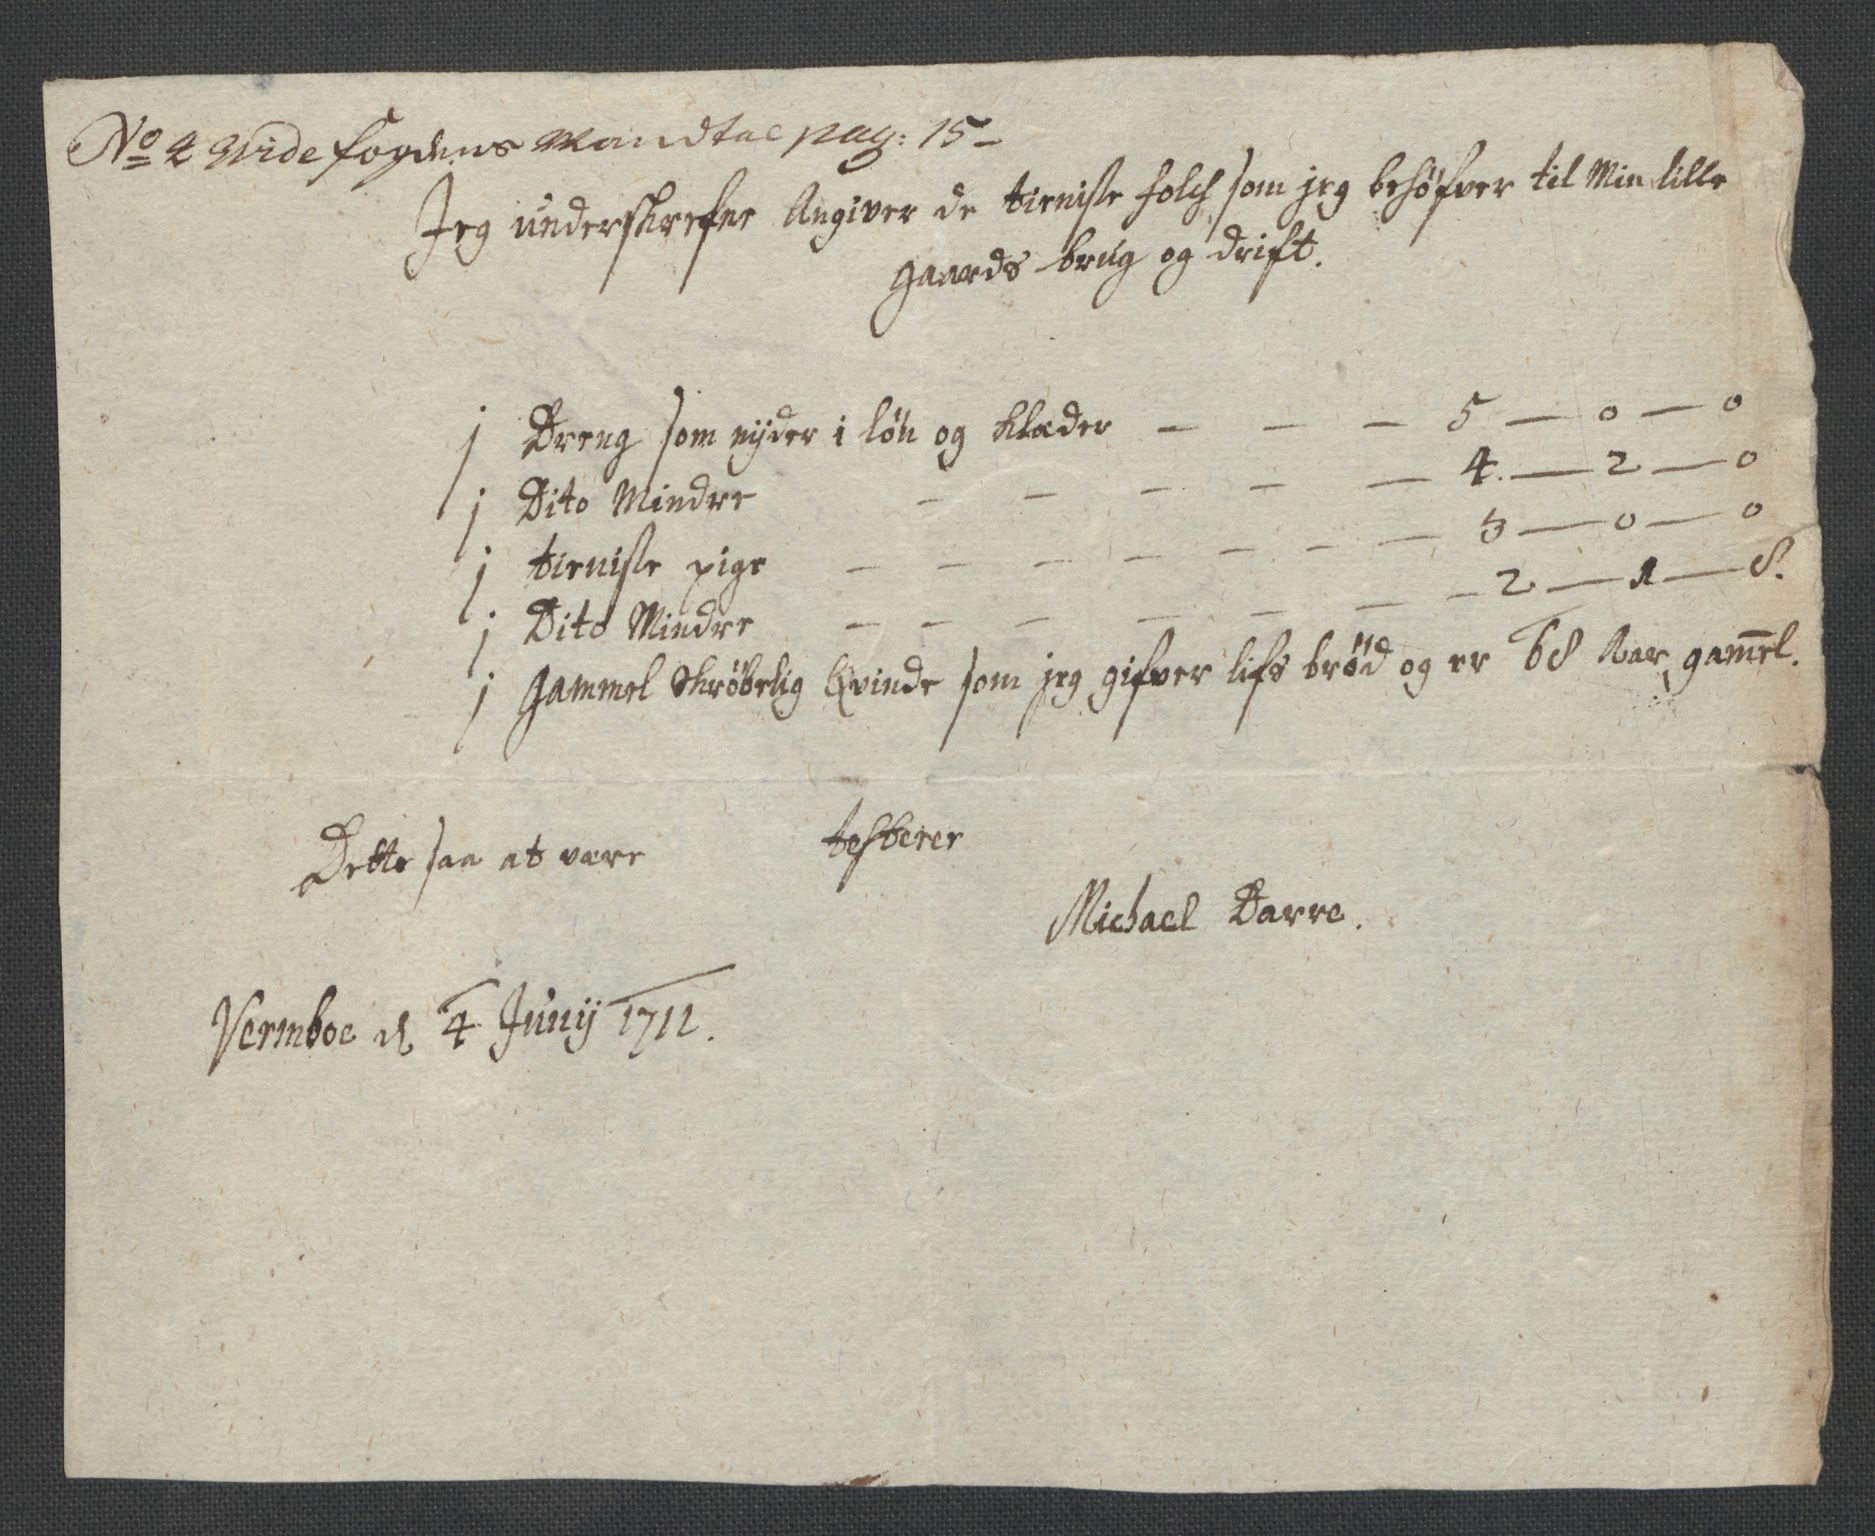 No 4 Vide fogdens Mandtal pag: 15 -
Jeg underskrefne Angiver de tieniste folch som jeg behøfver til Min lille
gaards brug og drift.
1 Dreng som nyder i løn og Klæder — — — 5 — 0 — 0
1 Dito Mindre — — — — — 4. — 2 — 0
1 tieniste pige — — — — — — — 3 — 0 — 0
1 Dito Mindre — — — — — — — 2 — 1 — 8.
1 gammel Skrøbelig Qvinde som jeg gifver lifs brød og er 68 Aar gam̄el.
Dette saa at være testerer
Michael Darre.
Vermboe d. 4 Junij 1711.